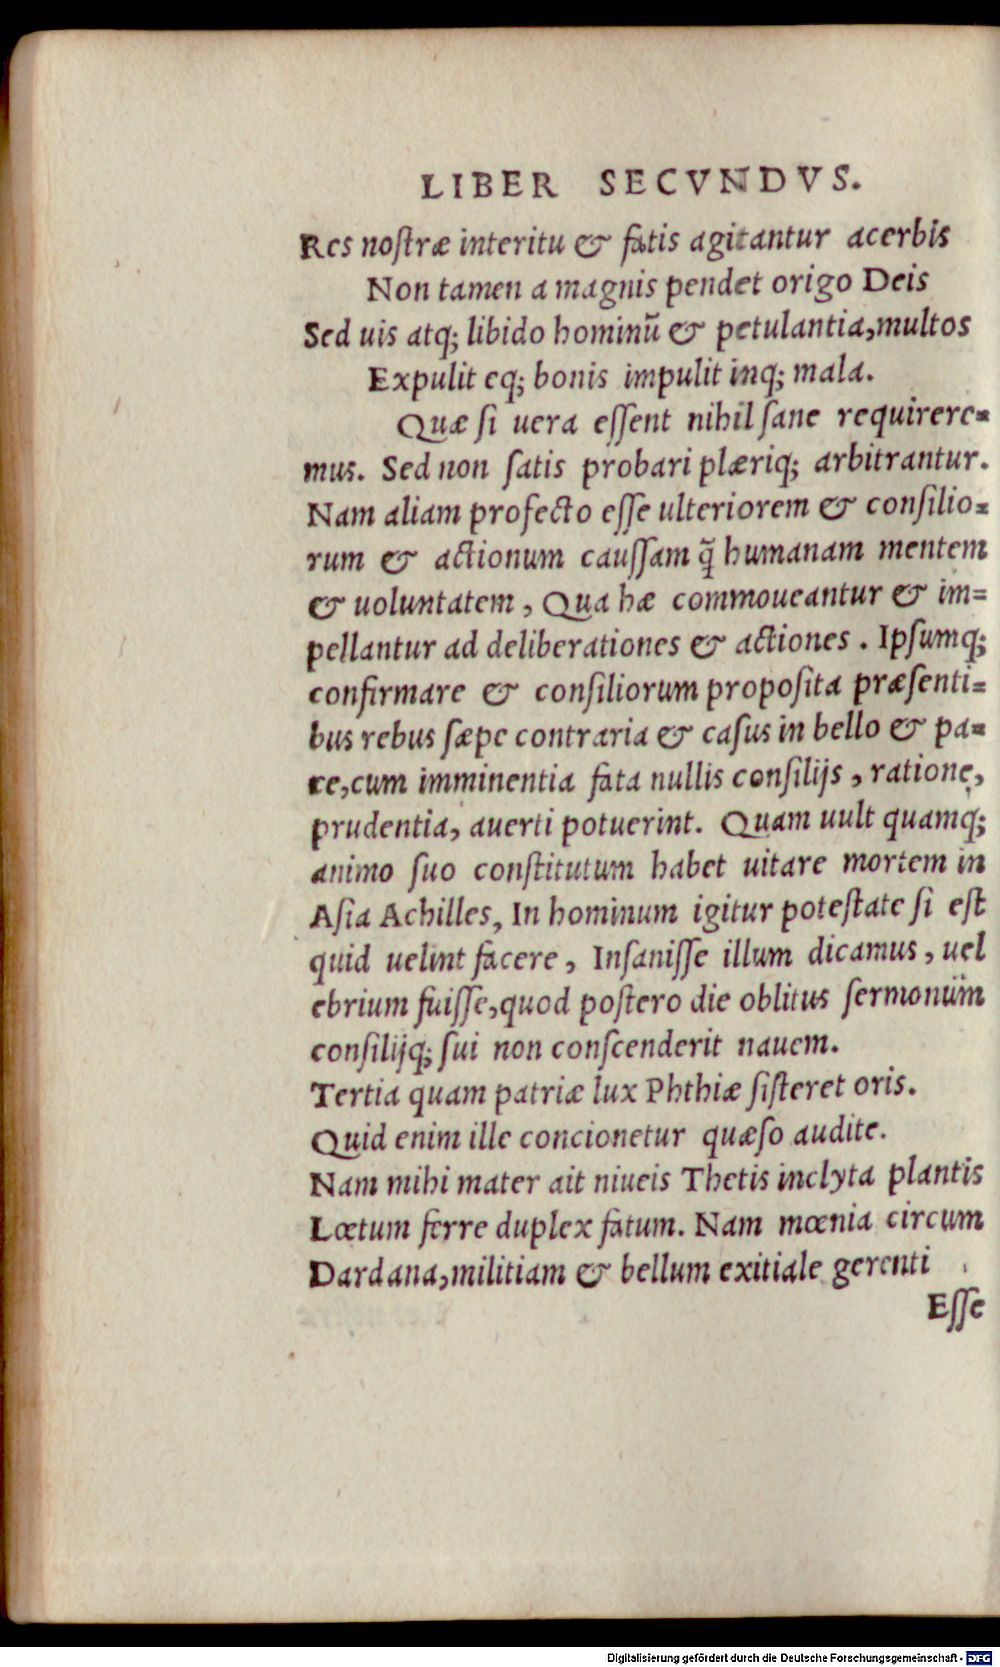 LIBER SECVNDVS.
Res nostræ interitu & fatis agitantur acerbis
Non tamen a magnis pendet origo Deis
Sed uis atq; libido hominū & petulantia, multos
Expulit eq; bonis impulit inq; mala.
Quæ si uera essent nihil sane requirere=
mus. Sed non satis probari plæriq; arbitrantur.
Nam aliam profecto esse ulteriorem & consilio=
rum & actionum caussam q̃ humanam mentem
& uoluntatem, Qua hæ commoueantur & im=
pellantur ad deliberationes & actiones. Ipsumq;
confirmare & consiliorum proposita præsenti=
bus rebus sæpe contraria & casus in bello & pa=
ce, cum imminentia fata nullis consilijs, ratione,
prudentia, auerti potuerint. Quam uult quamq;
animo suo constitutum habet uitare mortem in
Asia Achilles, In hominum igitur potestate si est
quid uelint facere, Insanisse illum dicamus, uel
ebrium fuisse, quod postero die oblitus sermonum
consilijq; sui non conscenderit nauem.
Tertia quam patriæ lux Phthiæ sisteret oris.
Quid enim ille concionetur quæso audite.
Nam mihi mater ait niueis Thetis inclyta plantis
Lœtum ferre duplex fatum. Nam mœnia circum
Dardana, militiam & bellum exitiale gerenti
Esse
Digitalisierung gefördert durch die Deutsche Forschungsgemeinschaft - DFG